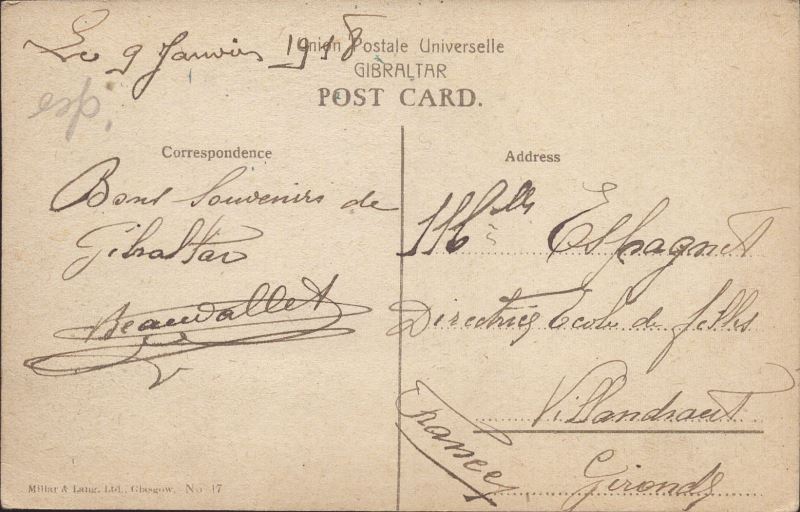 Le 9 Janvier 1918
Union Postale Universelle
GIBRALTAR
POST CARD.
Correspondence
Bons Souvenirs de
Gibraltar
Beauvallet
Address
Mlle Espagnet
Directrice Ecole de filles
Villandraut
Gironde
France
Millar & Lang, Ltd., Glasgow. No 17